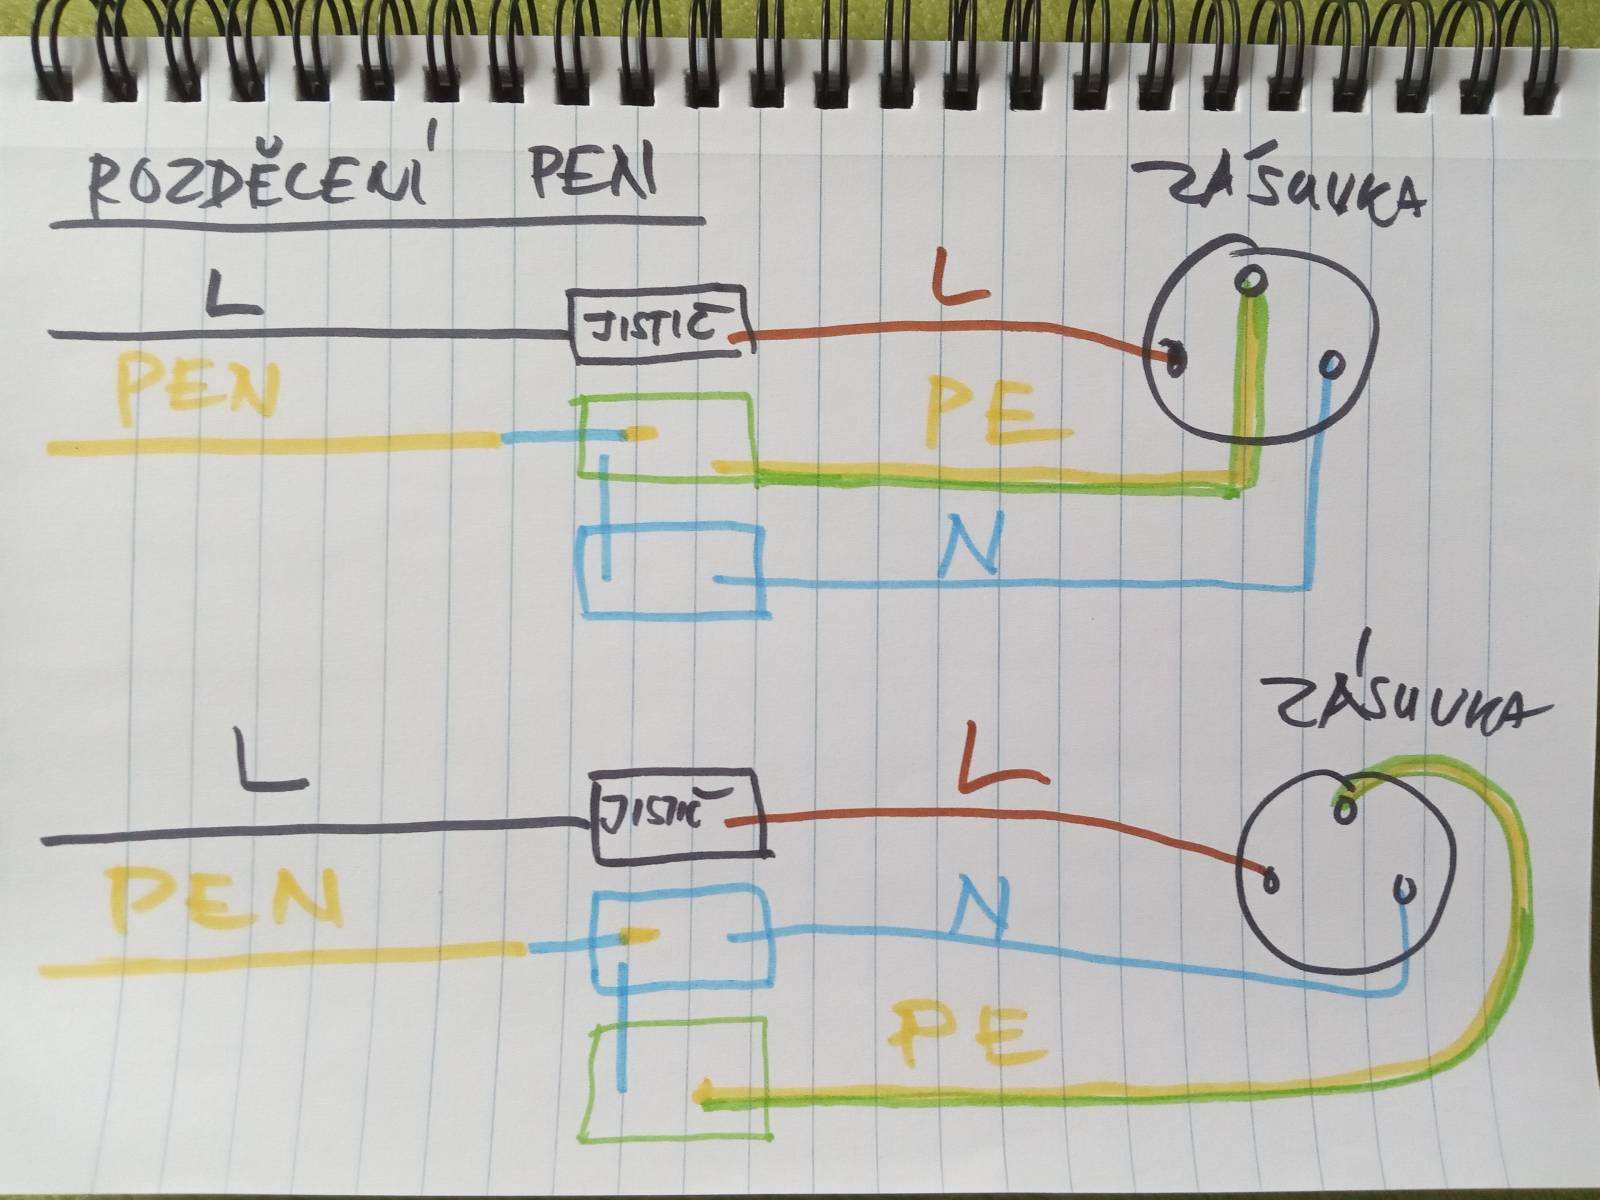 ROZDĚCENÍ PEN
ZÁSUVKA
L
JISTIČ
L
PEN
PE
N
ZÁSUVKA
L
JISTIČ
L
PEN
N
PE